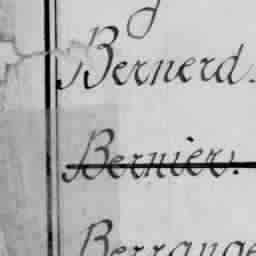 Bernerd.
Bernier.
Berrange